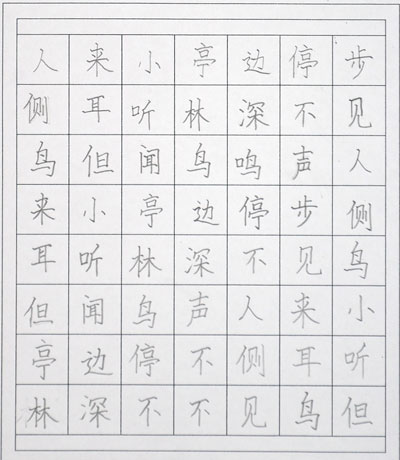 人来小亭边停步
侧耳听林深不见
鸟但闻鸟鸣声人
来小亭边停步侧
耳听林深不见鸟
但闻鸟声人来小
亭边停不侧耳听
林深不不见鸟但